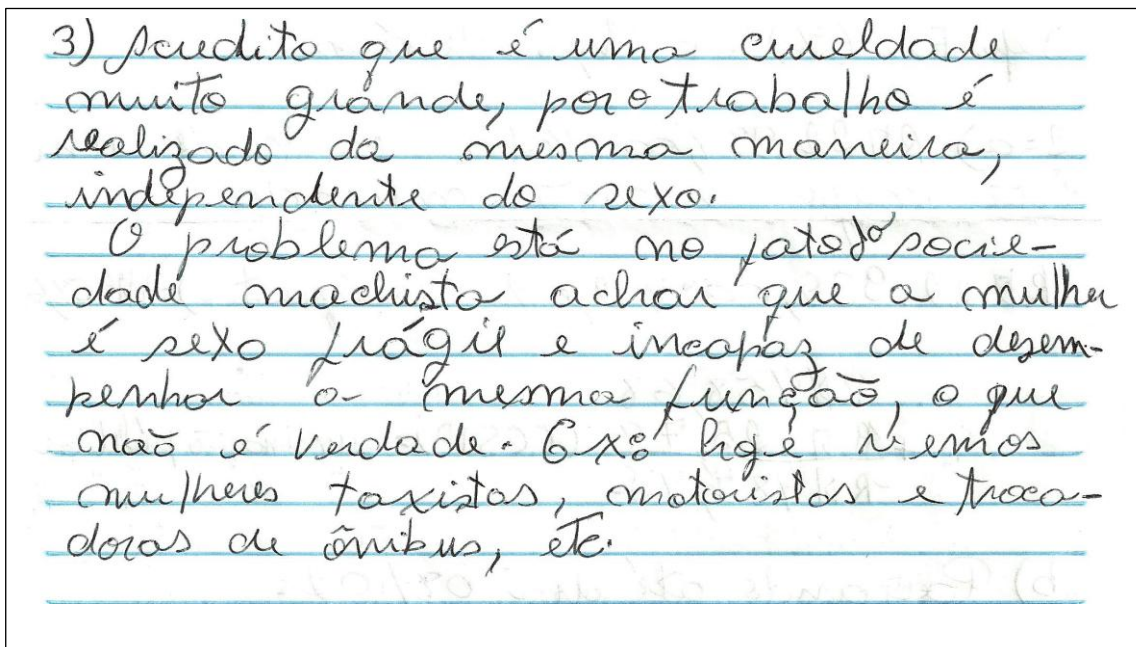 3) Acredito que é uma crueldade
muito grande, pois o trabalho é
realizado da mesma maneira,
independente do sexo.
O problema está no fato da socie-
dade machista achar que a mulher
é sexo frágil e incapaz de desem-
penhar a mesma função, o que
não é verdade. Ex: hoje vemos
mulheres taxistas, motoristas e troca-
doras de ônibus, etc.